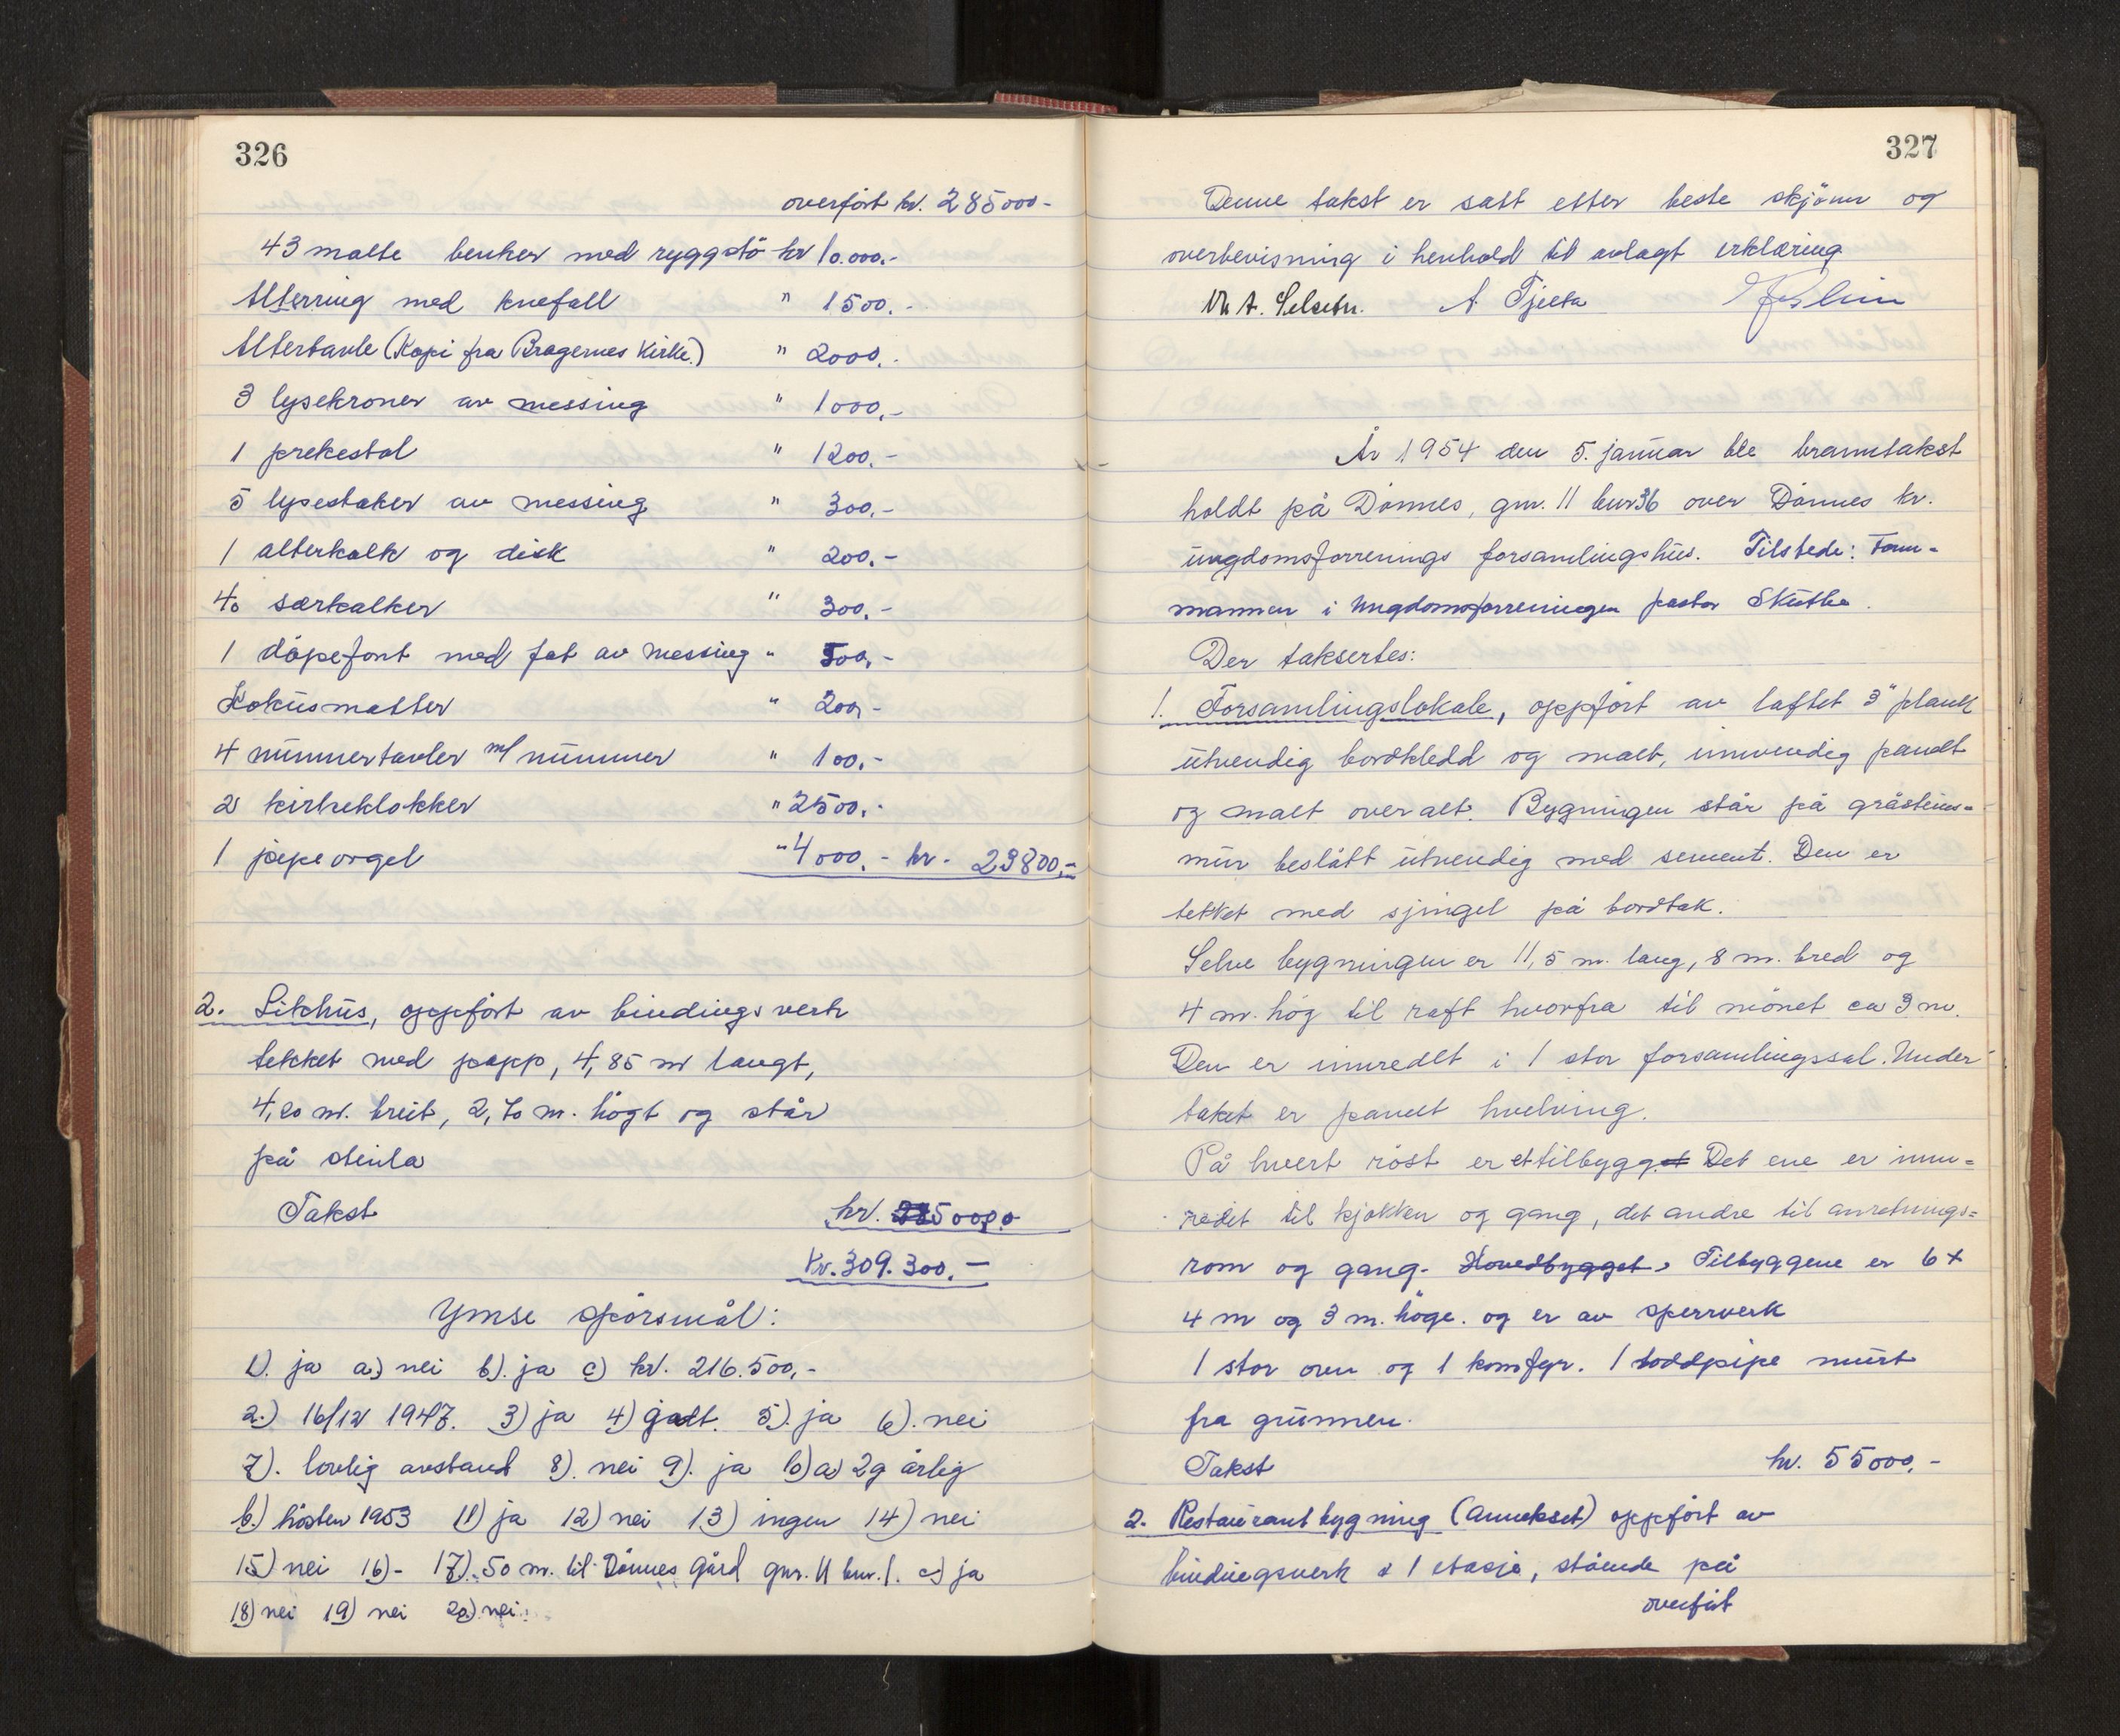 326
overført kr. 285000-
43 malte benker med ryggstö kr 10.000.-
Alterring med knefall " 1500.-
Altertavle (Kopi fra Bragernes Kirke.) " 2000.-
3 lysekroner av messing " 1000.-
1 prekestol " 1200.-
5 lysestaker av messing " 300.-
1 alterkalk og disk " 200.-
40 særkalker " 300.-
1 döpefont med fat av messing " 500.-
Kokusmatter " 200.-
4 nummertavler m/ nummer " 100.-
2 kirkeklokker " 2500.-
1 pipeorgel " 4000.- kr. 23800.-
2. Likhus, oppført av bindingsverk
tekket med papp, 4,85 m langt,
4,20 m. breit, 2,70 m. högt og står
på steinla
Takst kr. 500,0
Kr. 309.300.-
Ymse spörsmål:
1). ja a) nei b). ja c) kr. 216.500,-
2.) 16/12 1947. 3) ja 4) godt. 5). ja 6). nei
7). lovlig avstand 8). nei 9). ja 10) a) 2g årlig
b.) hösten 1953 11) ja 12) nei 13) ingen 14) nei
15) nei 16)- 17). 50 m. til Dönnes gård gnr. 11 bnr. 1. c) ja
18) nei 19) nei 20) nei.
327
Denne takst er satt etter beste skjönn og
overbevisning i henhold til avlagt erklæring
A. Tjetta
År 1954 den 5. januar ble branntakst
holdt på Dönnes, gnr. 11 bnr 36 over Dönnes kr.
ungdomsforrenings forsamlingshus. Tilstede: Form-
mannen i Ungdomsforreningen pastor
Der taksertes:
1. Forsamlingslokale, oppfört av laftet 3" plank
utvendig bordkledd og malt, innvendig panelt
og malt over alt. Bygningen står på gråsteins-
mur beslått utvendig med sement. Den er
tekket med sjingel på bordtak.
Selve bygningen er 11,5 m. lang, 8 m. bred og
4 m. hög til raft hvorfra til mönet ca 3 m.
Den er innredet i 1 stor forsamlingssal. Under
taket er panelt hvelving.
På hvert röst er et tilbygg. Det ene er inn-
redet til kjökken og gang, det andre til anretnings-
rom og gang. Hovedbygget, Tilbyggene er 6 x
4 m og 3 m. höge. og er av sperrverk
1 stor ovn og 1 komfyr. 1 toddpipe murt
fra grunnen.
Takst kr. 55000,-
2. Restaurantbygning (Annekset) oppfört av
bindingsverk i 1 etasje, stående på
overført